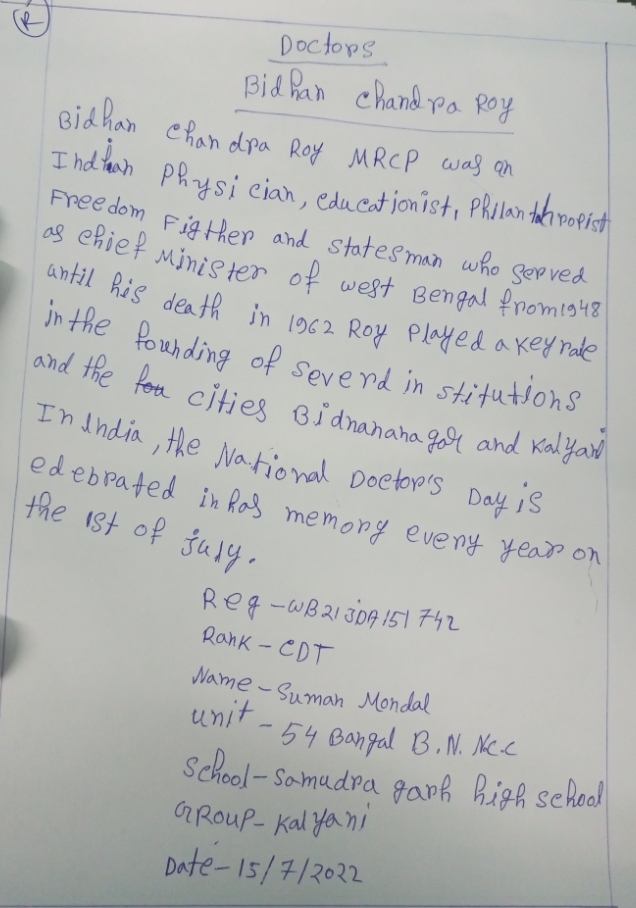 R
Doctors
Bidhan Chandra Roy
Bidhan Chandra Roy MRCP was an
Indian Physician, educationist, Philanthropist
Freedom Figther and statesman who served
as chief Minister of west Bengal from 1948
until his death in 1962 Roy Played a key rate
in the founding of severd in stitutions
and the cities Bidnanana gar and Kalyani
In India, the National Doctor's Day is
edebrated in has memory every year on
the 1st of july.
Reg - WB21JDA151742
Rank - CDT
Name - Suman Mondal
unit - 54 Bangal B.N. NCC
School - Samudra garh high school
GROUP - Kalyani
Date - 15/7/2022